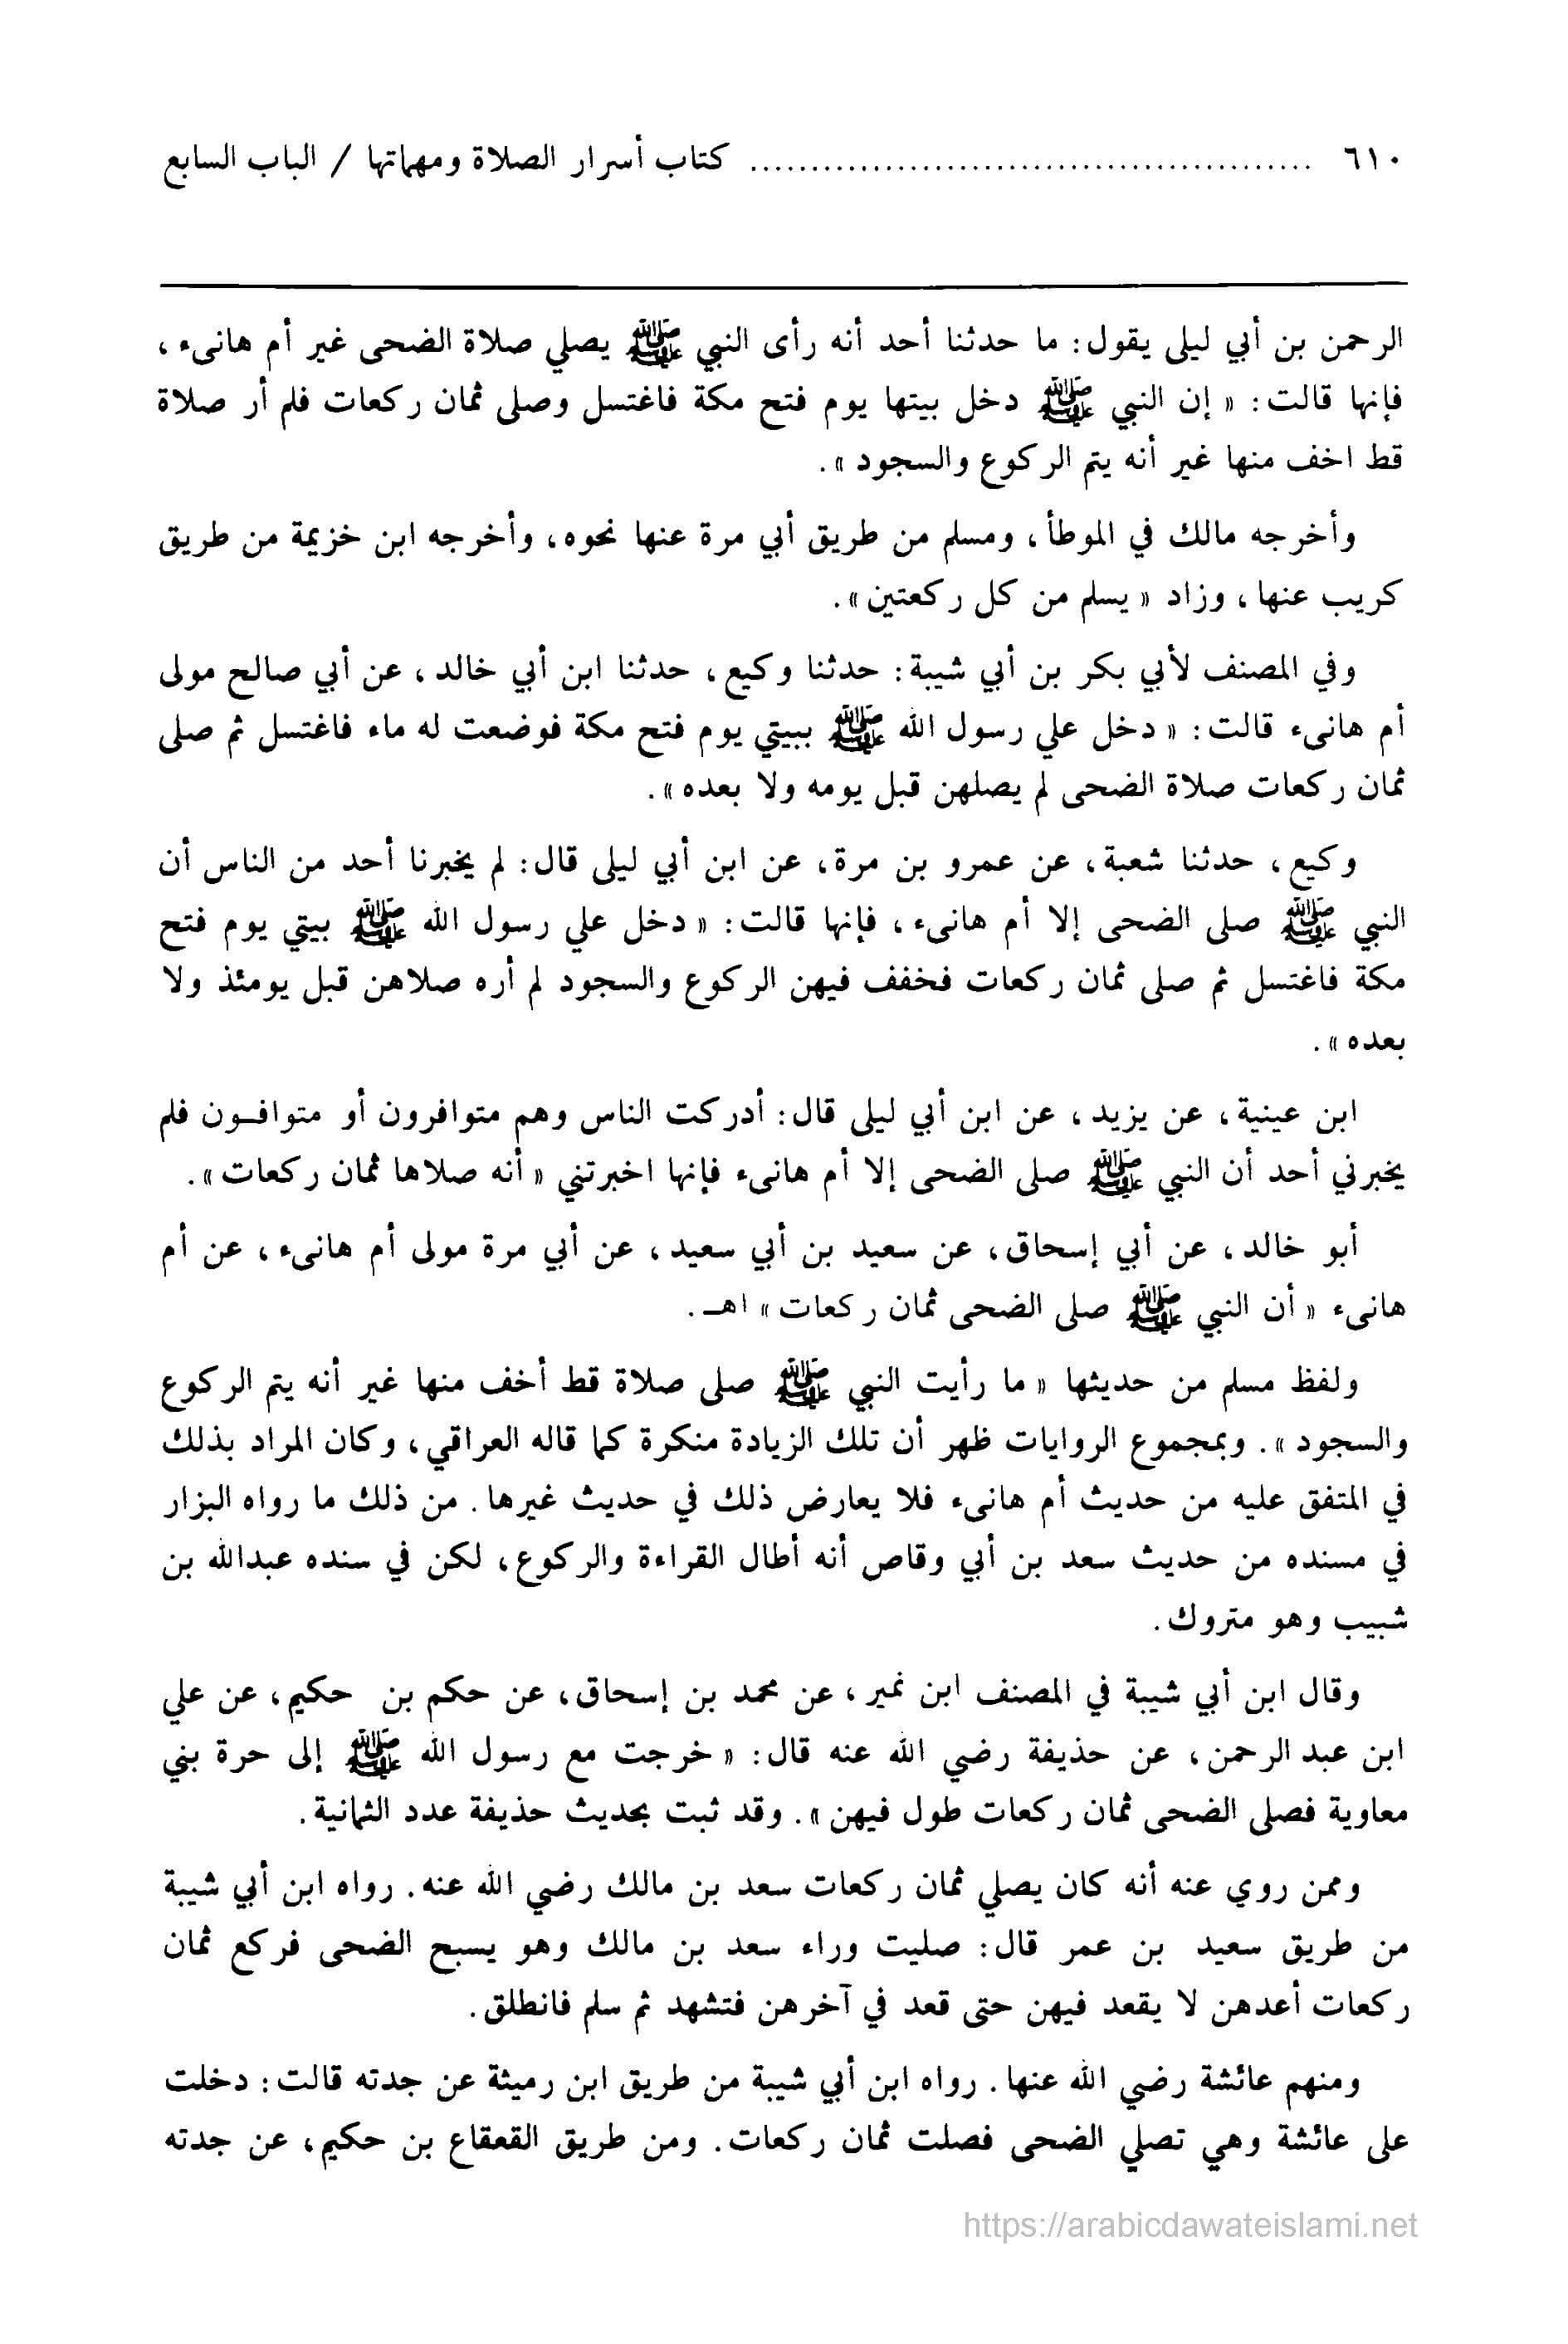 ٦١٠ .............................................. كتاب أسرار الصلاة ومهماتها / الباب السابع
الرحمن بن أبي ليلى يقول: ما حدثنا أحد أنه رأى النبي ﷺ يصلي صلاة الضحى غير أم هانىء،
فإنها قالت: « إن النبي ﷺ دخل بيتها يوم فتح مكة فاغتسل وصلى ثمان ركعات فلم أر صلاة
قط اخف منها غير أنه يتم الركوع والسجود ».
وأخرجه مالك في الموطأ، ومسلم من طريق أبي مرة عنها نحوه، وأخرجه ابن خزيمة من طريق
كريب عنها، وزاد « يسلم من كل ركعتين ».
وفي المصنف لأبي بكر بن أبي شيبة: حدثنا وكيع، حدثنا ابن أبي خالد، عن أبي صالح مولى
أم هانىء قالت: « دخل علي رسول الله ﷺ ببيتي يوم فتح مكة فوضعت له ماء فاغتسل ثم صلى
ثمان ركعات صلاة الضحى لم يصلهن قبل يومه ولا بعده ».
وكيع، حدثنا شعبة، عن عمرو بن مرة، عن ابن أبي ليلى قال: لم يخبرنا أحد من الناس أن
النبي ﷺ صلى الضحى إلا أم هانىء، فإنها قالت: « دخل علي رسول الله ﷺ بيتي يوم فتح
مكة فاغتسل ثم صلى ثمان ركعات فخفف فيهن الركوع والسجود لم أره صلاهن قبل يومئذ ولا
بعده ».
ابن عينية، عن يزيد، عن ابن أبي ليلى قال: أدركت الناس وهم متوافرون أو متوافـون فلم
يخبرني أحد أن النبي ﷺ صلى الضحى إلا أم هانىء فإنها اخبرتني « أنه صلاها ثمان ركعات ».
أبو خالد، عن أبي إسحاق، عن سعيد بن أبي سعيد، عن أبي مرة مولى أم هانىء، عن أم
هانىء « أن النبي ﷺ صلى الضحى ثمان ركعات » اهـ.
ولفظ مسلم من حديثها « ما رأيت النبي ﷺ صلى صلاة قط أخف منها غير أنه يتم الركوع
والسجود ». وبمجموع الروايات ظهر أن تلك الزيادة منكرة كما قاله العراقي، وكان المراد بذلك
في المتفق عليه من حديث أم هانىء فلا يعارض ذلك في حديث غيرها. من ذلك ما رواه البزار
في مسنده من حديث سعد بن أبي وقاص أنه أطال القراءة والركوع، لكن في سنده عبدالله بن
شبيب وهو متروك.
وقال ابن أبي شيبة في المصنف ابن نمير، عن محمد بن إسحاق، عن حكم بن حكيم، عن علي
ابن عبد الرحمن، عن حذيفة رضي الله عنه قال: « خرجت مع رسول الله ﷺ إلى حرة بني
معاوية فصلى الضحى ثمان ركعات طول فيهن ». وقد ثبت بحديث حذيفة عدد الثمانية.
وممن روي عنه أنه كان يصلي ثمان ركعات سعد بن مالك رضي الله عنه. رواه ابن أبي شيبة
من طريق سعيد بن عمر قال: صليت وراء سعد بن مالك وهو يسبح الضحى فركع ثمان
ركعات أعدهن لا يقعد فيهن حتى قعد في آخرهن فتشهد ثم سلم فانطلق.
ومنهم عائشة رضي الله عنها. رواه ابن أبي شيبة من طريق ابن رميثة عن جدته قالت: دخلت
على عائشة وهي تصلي الضحى فصلت ثمان ركعات. ومن طريق القعقاع بن حكيم، عن جدته
https://arabicdawateislami.net